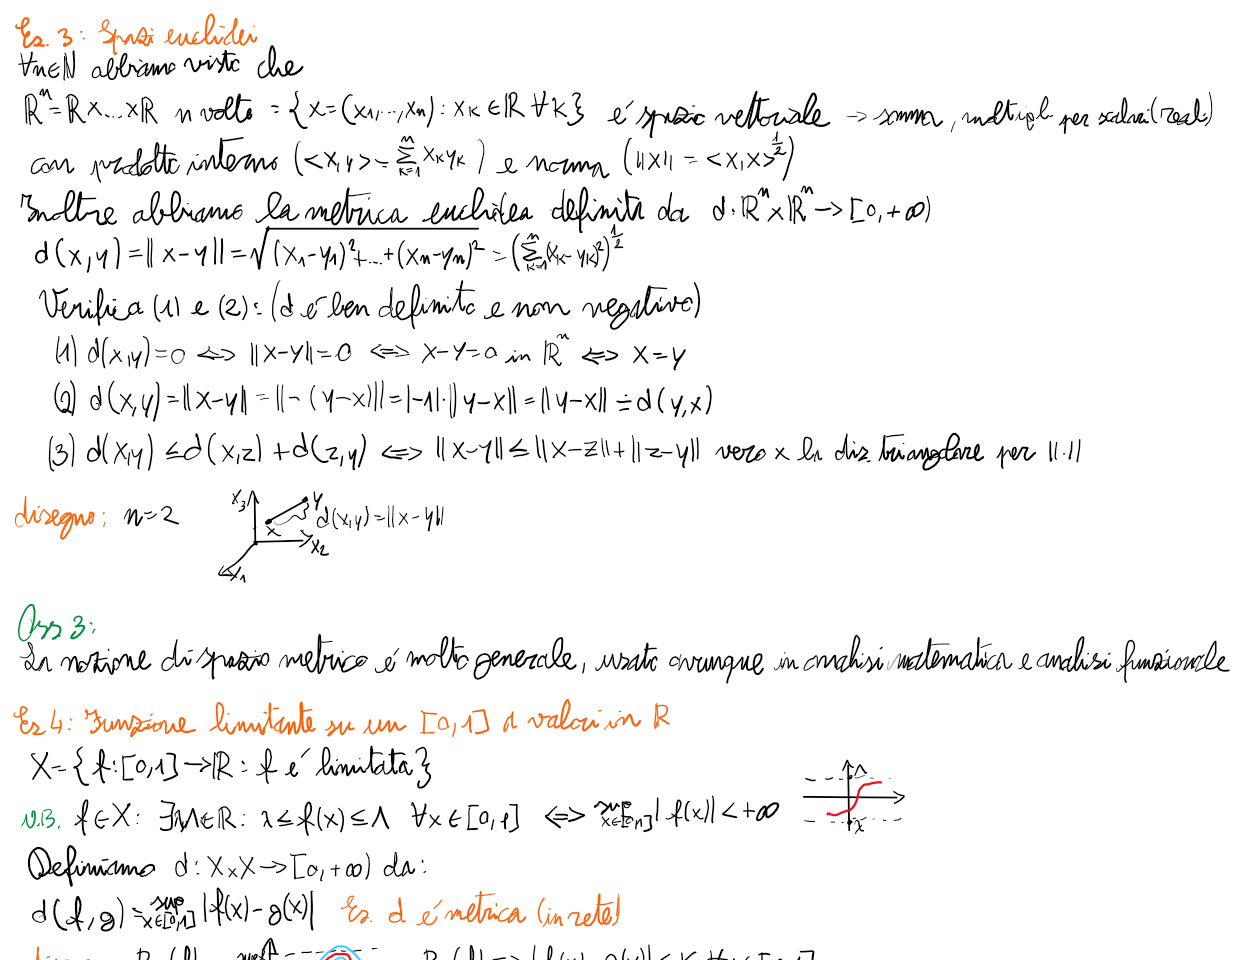 Es. 3: Spazi euclidei
∀n∈ℕ abbiamo visto che
ℝⁿ=ℝ×...×ℝ n volte = {x=(x₁,...,xₙ): xₖ∈ℝ ∀k} é spazio vettoriale → somma, moltipl per scalari (reali)
con prodotto interno (<x,y>=∑ₖ₌₁ⁿ xₖyₖ) e norma (||x||=<x,x>^½)
Inoltre abbiamo la metrica euclidea definita da d:ℝⁿ×ℝⁿ→[0,+∞)
d(x,y)=||x-y||=√(x₁-y₁)²+...+(xₙ-yₙ)²=(∑ₖ₌₁ⁿ(xₖ-yₖ)²)^½
Verifica (1) e (2): (d é ben definito e non negativo)
(1) d(x,y)=0 ⇔ ||x-y||=0 ⇔ x-y=0 in ℝⁿ ⇔ x=y
(2) d(x,y)=||x-y||=||-(y-x)||=|-1|·||y-x||=||y-x||≑d(y,x)
(3) d(x,y)≤d(x,z)+d(z,y) ⇔ ||x-y||≤||x-z||+||z-y|| vero x la diz triangolare per ||·||
disegno: n=2
x₃ y
x d(x,y)=||x-y||
x₂
x₁
Oss 3:
La nozione di spazio metrico é molto generale, usato ovunque in analisi matematica e analisi funzionale
Es 4: Funzione limitante su un [0,1] a valori in ℝ
X={f:[0,1]→ℝ: f é limitata}
Λ
N.B. f∈X: ∃λ,Λ∈ℝ: λ≤f(x)≤Λ ∀x∈[0,1] ⇔ sup x∈[0,1] |f(x)|<+∞
λ
Definiamo d: X×X→[0,+∞) da:
d(f,g)=sup x∈[0,1] |f(x)-g(x)| Es. d é metrica (in rete)